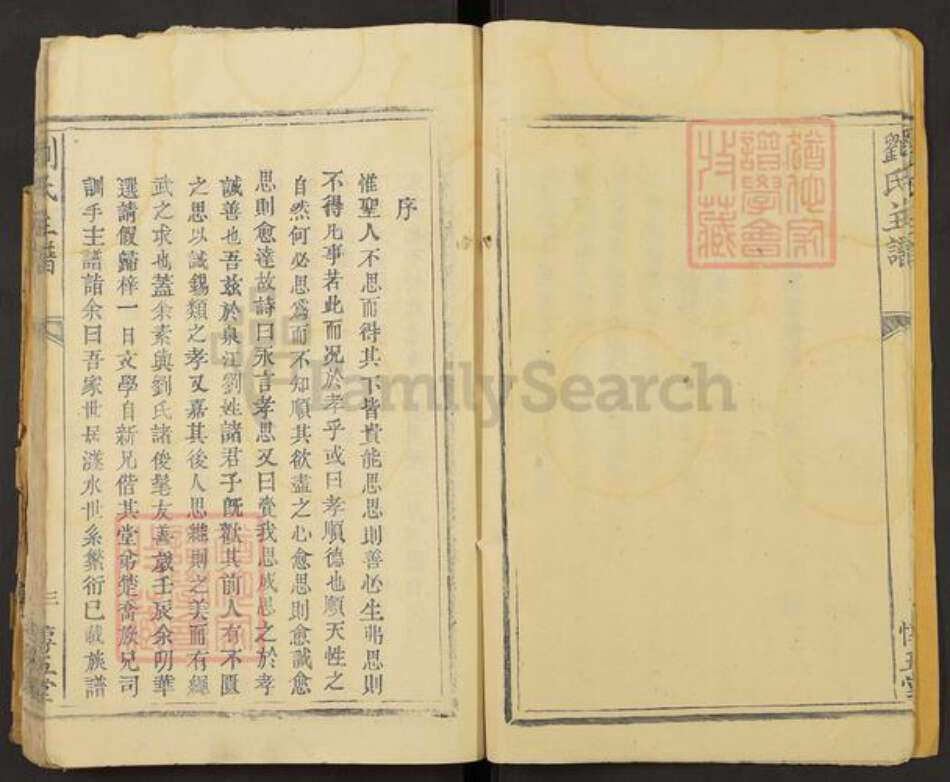 劉氏主譜
序
惟聖人不思而得其下皆貴能思思則善心生弗思則
不得凡事若此而況於孝乎或曰孝順德也順天性之
自然何必思爲而不知順其欲盡之心愈思則愈誠愈
思則愈達故詩曰永言孝思又曰賚我思成思之於孝
誠善也吾兹於泉江劉姓諸君子既歡其前人有不匱
之思以誠錫類之孝又嘉其後人思繼則之美而有繩
武之求也蓋余素與劉氏諸俊髦友善歲壬辰余明華
選請假歸梓一日文學自新兄偕其堂弟楚喬族兄司
訓手主譜詣余曰吾家世居漢水世系繁衍已載族譜
劉氏主譜
三
惇五堂
惇五堂
猶他家
譜學會
收藏
FamilySearch